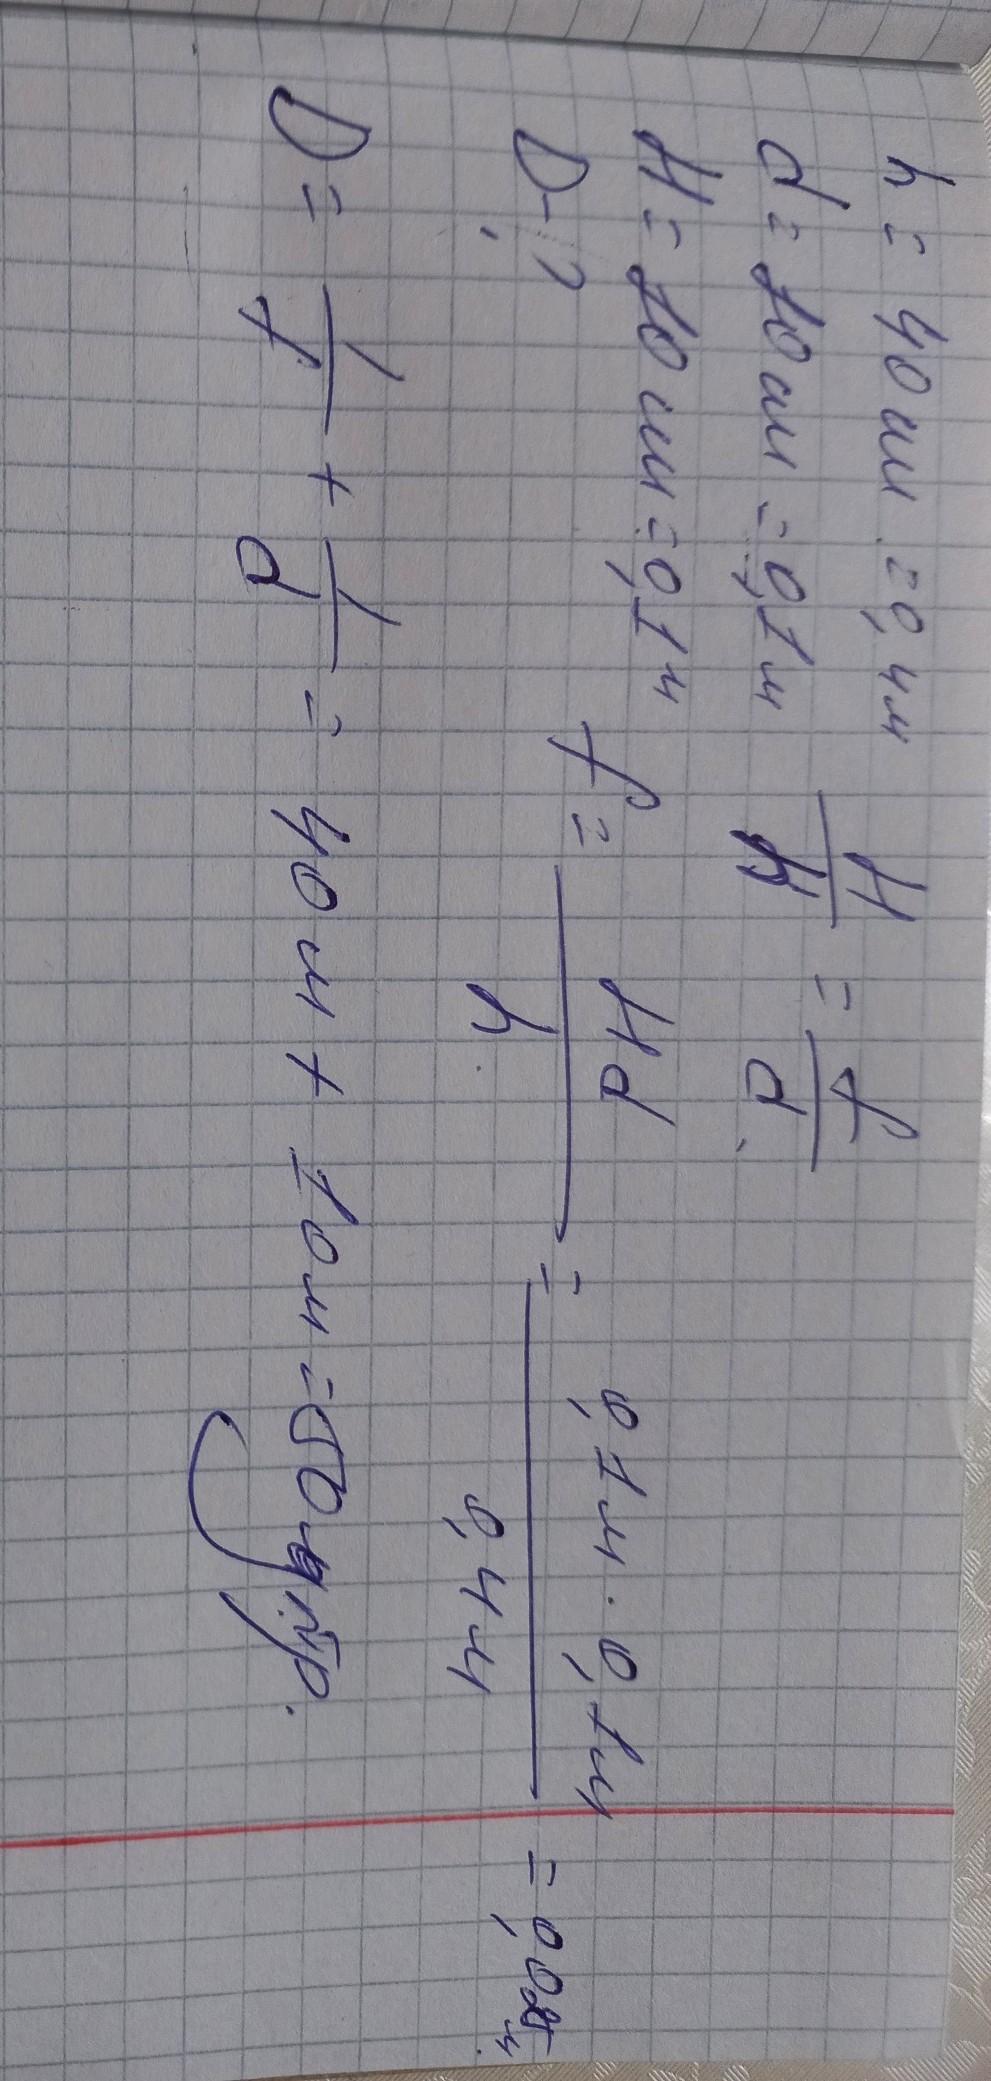 h = 40 см = 0,4м
d = 10 см = 0,1м
H = 10 см = 0,1м
D - ?
H/h = f/d
f = Hd/h = 0,1м · 0,1м / 0,4м = 0,025 м
D = 1/f + 1/d = 40м + 10м = 50 дптр.